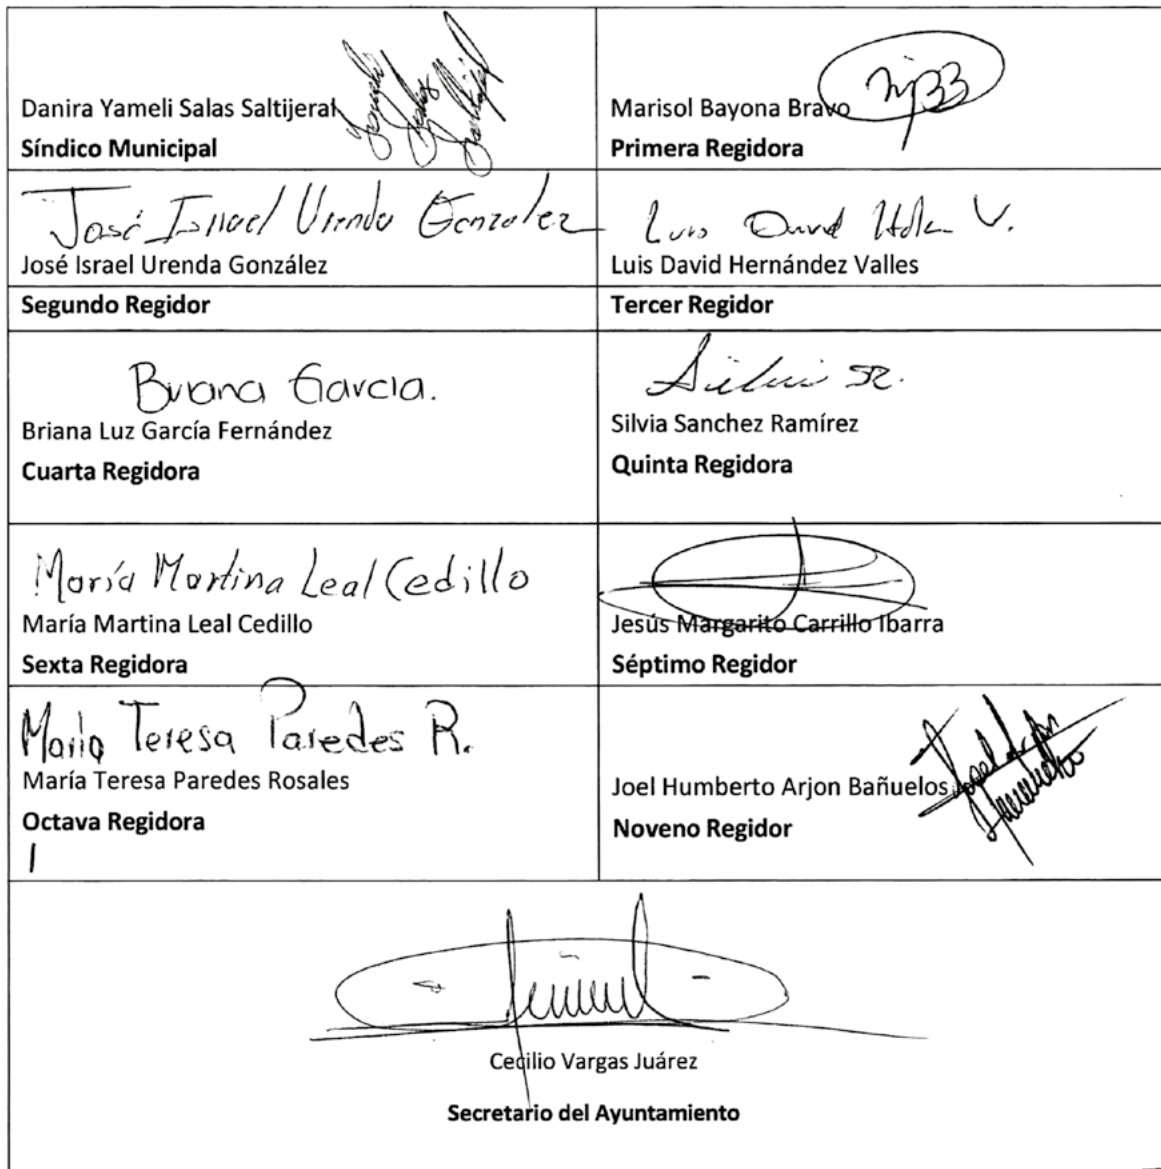 Danira Yameli Salas Saltijeral
Síndico Municipal
Marisol Bayona Bravo
Primera Regidora
José Israel Urenda Gonzalez
José Israel Urenda González
Segundo Regidor
Luis David V.
Luis David Hernández Valles
Tercer Regidor
Briana Garcia.
Briana Luz García Fernández
Cuarta Regidora
Silvia SR.
Silvia Sanchez Ramírez
Quinta Regidora
María Martina Leal Cedillo
María Martina Leal Cedillo
Sexta Regidora
Jesús Margarito Carrillo Ibarra
Séptimo Regidor
María Teresa Paredes R.
María Teresa Paredes Rosales
Octava Regidora
Joel Humberto Arjon Bañuelos
Noveno Regidor
Cecilio Vargas Juárez
Secretario del Ayuntamiento